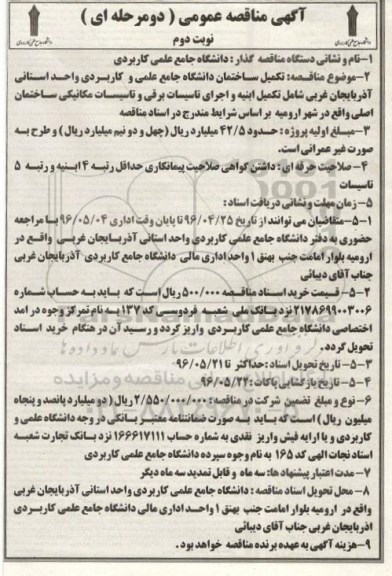 آگهی مناقصه عمومی ( دومرحله ای )
نوبت دوم
۱-نام و نشانی دستگاه مناقصه گذار : دانشگاه جامع علمی کاربردی
۲-موضوع مناقصه: تکمیل ساختمان دانشگاه جامع علمی و کاربردی واحد استانی
آذربایجان غربی شامل تکمیل ابنیه و اجرای تاسیسات برقی و تاسیسات مکانیکی ساختمان
اصلی واقع در شهر ارومیه بر اساس شرایط مندرج در اسناد مناقصه
۳-مبلغ اولیه پروژه : حدود ۴۲/۵ میلیارد ریال (چهل و دو نیم میلیارد ریال ) و طرح به
صورت غیر عمرانی است.
۴- صلاحیت حرفه ای : داشتن گواهی صلاحیت پیمانکاری حداقل رتبه ۴ ابنیه و رتبه ۵
تاسیسات
۵- زمان مهلت و نشانی دریافت اسناد :
۵-۱- متقاضیان می توانند از تاریخ ۹۶/۰۴/۲۵ تا پایان وقت اداری ۹۶/۰۵/۰۴ با مراجعه
حضوری به دفتر دانشگاه جامع علمی کاربردی واحد استانی آذربایجان غربی واقع در
ارومیه بلوار امامت جنب بهنق ۱ واحد اداری مالی دانشگاه جامع کاربردی آذربایجان غربی
جناب آقای دیبائی
۵-۲- قیمت خرید اسناد مناقصه ۵۰۰/۰۰۰ ریال است که باید به حساب شماره
۲۱۷۸۶۹۹۰۰۳۰۰۶ نزد بانک ملی شعبه فردوسی کد ۱۳۷ به نام تمرکز وجوه در امد
اختصاصی دانشگاه جامع علمی کاربردی واریز گردد و رسید آن در هنگام خرید اسناد
تحویل گردد.
۵-۳- تاریخ تحویل اسناد : حداکثر تا ۹۶/۰۵/۲۱
۵-۴- تاریخ بازگشایی پاکات : ۹۶/۰۵/۲۲
۶- نوع و مبلغ تضمین شرکت در مناقصه : ۲/۵۵۰/۰۰۰/۰۰۰ ریال ( دو میلیارد پانصد و پنجاه
میلیون ریال ) است که باید به صورت ضمانتنامه معتبر بانکی در وجه دانشگاه علمی و
کاربردی و یا ارایه فیش واریز نقدی به شماره حساب ۱۶۶۶۱۷۱۱۱ نزد بانک تجارت شعبه
استاد نجات الهی کد ۱۶۵ به نام وجوه سپرده دانشگاه جامع علمی کاربردی
۷- مدت اعتبار پیشنهاد ها: سه ماه و قابل تمدید سه ماه دیگر
۸- محل تحویل اسناد مناقصه : دانشگاه جامع علمی کاربردی واحد استانی آذربایجان غربی
واقع در ارومیه بلوار امامت جنب بهنق ۱ واحد اداری مالی دانشگاه جامع علمی کاربردی
اذربایجان غربی جناب آقای دیبائی
۹-هزینه آگهی به عهده برنده مناقصه خواهد بود .